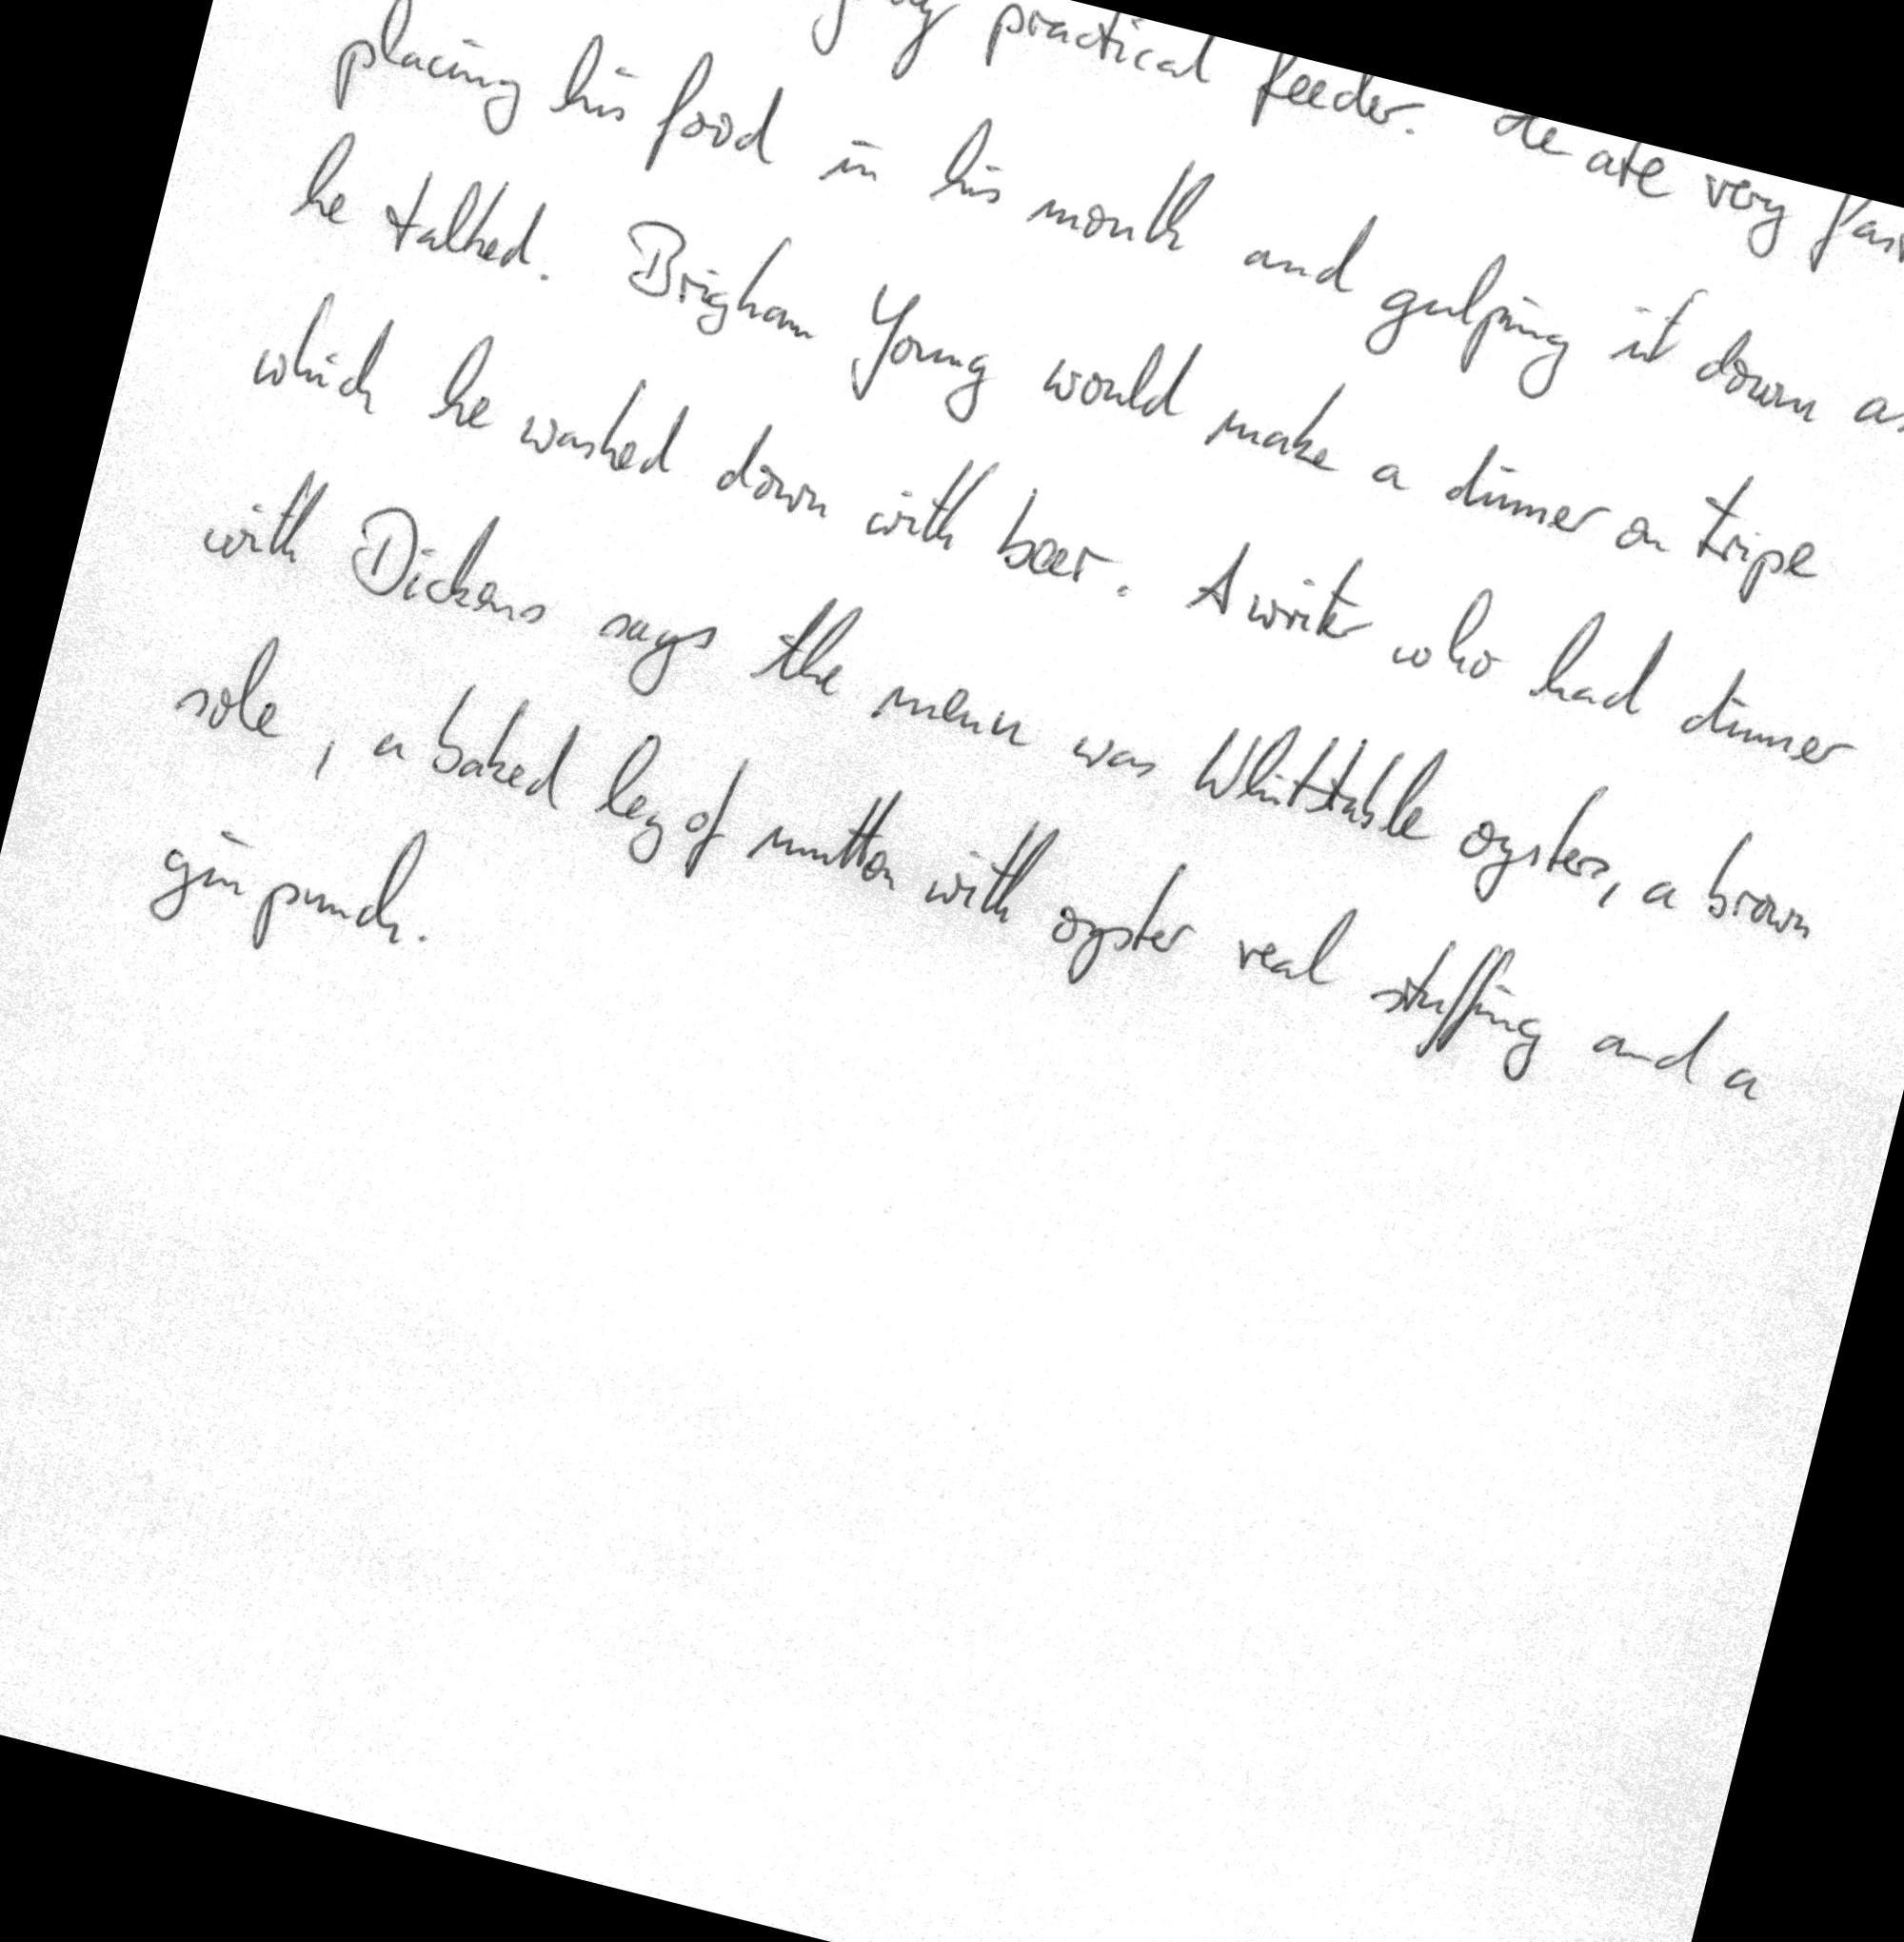 practical feeder. He ate very fast
placing his food in his mouth and gulping it down as
he talked. Brigham Young would make a dinner on tripe
which he washed down with beer. A writer who had dinner
with Dickens says the menu was Whitstable oysters, a brown
sole, a baked leg of mutton with oyster veal stuffing and a
gin punch.